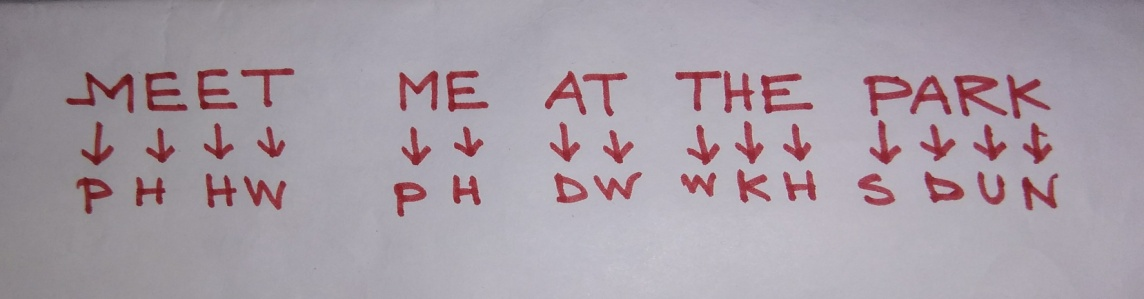 MEET ME AT THE PARK
↓ ↓ ↓ ↓ ↓ ↓ ↓ ↓ ↓ ↓ ↓ ↓ ↓ ↓ ↓
PHHW PH DW WKH SDUN